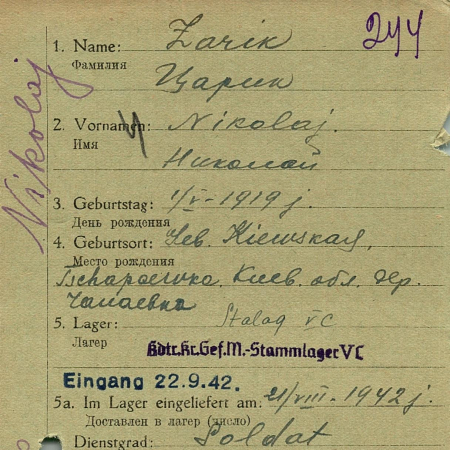 244
Nikolaj
1. Name: Zarik
Фамилия
Царик
2. Vornamen: Nikolaj.
Имя
Николай
3. Geburtstag: 1/V-1919 j.
День рождения
4. Geburtsort: Geb. Kiewskaja,
Место рождения
Tschapaewka, Киев. обл. дер.
Чапаевка
5. Lager: Stalag VC
Лагерь
Kdtr.Kr.Gef.M.-Stammlager VC
Eingang 22.9.42.
5a. Im Lager eingeliefert am: 21/VIII-1942 j.
Доставлен в лагер (число)
Dienstgrad: Soldat